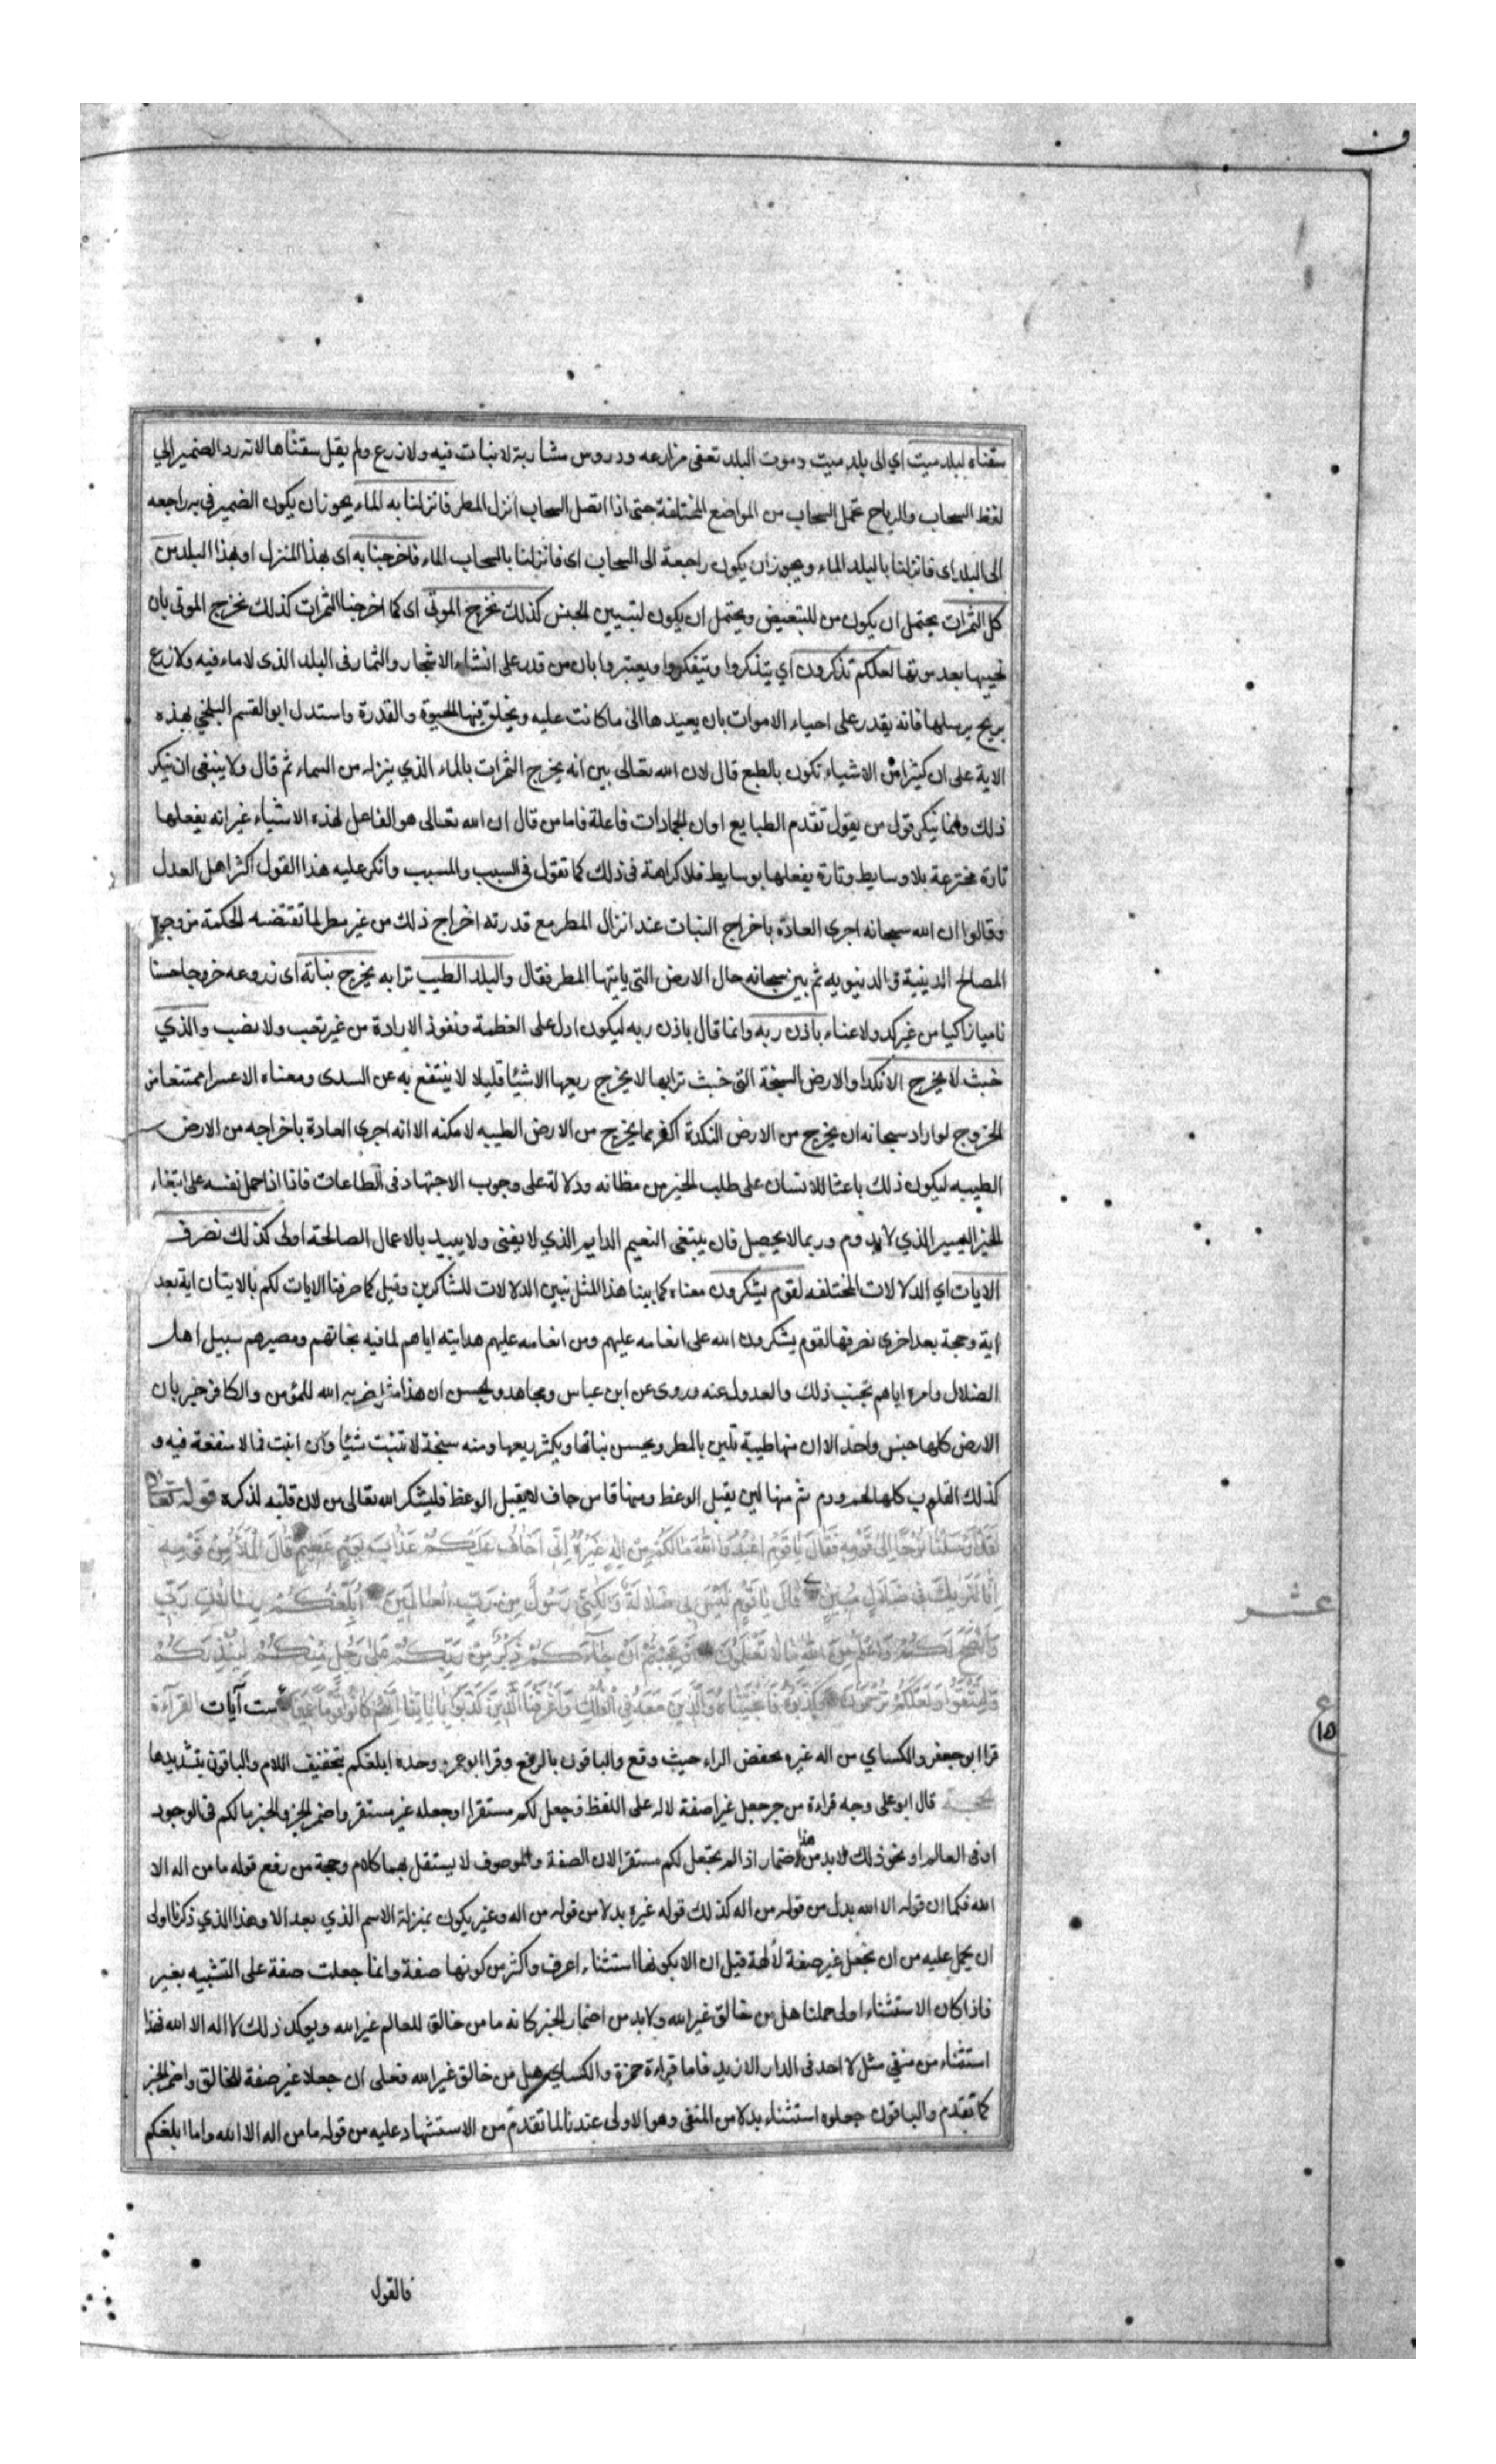 سقناه لبلد ميت اي الى بلد ميت وموت البلد تعفى مزارعه ودروس مشاربة لا نبات فيه ولا زرع ولم يقل سقناها لانه رد الضمير الي
لفظ السحاب والرياح تحمل السحاب من المواضع المختلفة حتى اذا اتصل السحاب انزل المطر فانزلنا به الماء يجوز ان يكون الضمير في به راجعه
الى البلد اى فانزلنا بالبلد الماء ويجوز ان يكون راجعة الى السحاب اى فانزلنا بالسحاب الماء فاخرجنا به اى بهذا المنزل او بهذا البلد من
كل الثمرات يحتمل ان يكون من للتبعيض ويحتمل ان يكون لتبيين الجنس كذلك نخرج الموتى اى كما اخرجنا الثمرات كذلك نخرج الموتى بان
نحييها بعد موتها لعلكم تذكرون اي يتذكروا وتيفكروا ويعتبروا بان من قدر على انشاء الاشجار والثمار فى البلد الذى لا ماء فيه ولا زرع
بريح يرسلها فانه يقدر على احياء الاموات بان يعيدها الى ما كانت عليه ويخلق فيها الحيوة والقدرة واستدل ابو القسم البلخي بهذه
الاية على ان كثيرا من الاشياء تكون بالطبع قال لان الله تعالى بين انه يخرج الثمرات بالماء الذي ينزله من السماء ثم قال ولا ينبغى ان ينكر
ذلك وانما ينكر قول من يقول تقدم الطبايع او ان الجمادات فاعلة فاما من قال ان الله تعالى هو الفاعل لهذه الاشياء غير انه يفعلها
تارة مخترعة بلا وسايط وتارة يفعلها بوسايط فلا كراهة فى ذلك كما تقول فى السبب والمسبب وانكر عليه هذا القول اكثر اهل العدل
وقالوا ان الله سبحانه اجرى العادة باخراج النبات عند انزال المطر مع قدرته اخراج ذلك من غير مطر لما تقتضيه الحكمة من وجوه
المصالح الدينية والدنيويه ثم بين سبحانه حال الارض التى ياتيها المطر فقال والبلد الطيب ترابه يخرج نباتة اى زروعه خروجا حسنا
ناميا زاكيا من غير كد ولا عناء باذن ربه وانما قال باذن ربه ليكون ادل على العظمة ونفوذ الارادة من غير تعب ولا نصب والذي
خبث لا يخرج الا نكدا والارض السبخة التى خبث ترابها لا يخرج ريعها الا شيئا قليلا لا ينتفع به عن السدى ومعناه الا عسرا ممتنعا من
الخروج لو اراد سبحانه ان يخرج من الارض النكدة اكثر مما يخرج من الارض الطيبه لامكنه الا انه اجرى العادة باخراجه من الارض
الطيبه ليكون ذلك باعثا للانسان على طلب الخير من مظانه ودلالة على وجوب الاجتهاد فى الطاعات فاذا حمل نفسه على ابتغاء
الخير اليسير الذي لا يدوم وربما لا يحصل فان يبتغى النعيم الدايم الذي لا يفنى ولا يبيد بالاعمال الصالحة اولى كذلك نصرف
الايات اي الدلالات المختلفه لقوم يشكرون معناه كما بينا هذا المثل نبين الدلالات للشاكرين وقيل كما صرفنا الايات لكم بالاتيان اية بعد
اية وحجة بعد اخرى نصرفها لقوم يشكرون الله على انعامه عليهم ومن انعامه عليهم هدايته اياهم لما فيه نجاتهم ومصيرهم سبيل اهل
الضلال وامره اياهم تجنب ذلك والعدول عنه وروى عن ابن عباس ومجاهد والحسن ان هذا مثل ضربه الله للمؤمن والكافر خبر بان
الارض كلها جنس واحد الا ان منها طيبة تلين بالمطر ويحسن نباتها ويكثر ريعها ومنه سبخة لا تنبت شيئا وان انبت فما لا منفعة فيه و
كذلك القلوب كلها لحم ودم ثم منها لين يقبل الوعظ ومنها قاس جاف لا يقبل الوعظ فليشكر الله تعالى من لان قلبه لذكره قوله تعالى
لَقَدْ اَرْسَلْنَا نُوحًا اِلىٰ قَوْمِهِ فَقَالَ يَا قَوْمِ اعْبُدُوا اللّٰهَ مَا لَكُمْ مِنْ اِلٰهٍ غَيْرُهُ اِنّى اَخَافُ عَلَيْكُمْ عَذَابَ يَوْمٍ عَظِيمٍ قَالَ الْمَلَأُ مِنْ قَوْمِهِ
اِنَّا لَنَرٰيكَ فِى ضَلَالٍ مُبِينٍ قَالَ يَا قَوْمِ لَيْسَ بِى ضَلَالَةٌ وَلٰكِنّى رَسُولٌ مِنْ رَبّ الْعَالَمِينَ اُبَلّغُكُمْ رِسَالَاتِ رَبّى
وَاَنْصَحُ لَكُمْ وَاَعْلَمُ مِنَ اللّٰهِ مَا لَا تَعْلَمُونَ اَوَعَجِبْتُمْ اَنْ جَاءَكُمْ ذِكْرٌ مِنْ رَبّكُمْ عَلىٰ رَجُلٍ مِنْكُمْ لِيُنْذِرَكُمْ
وَلِتَتَّقُوا وَلَعَلَّكُمْ تُرْحَمُونَ فَكَذَّبُوهُ فَاَنْجَيْنَاهُ وَالَّذِينَ مَعَهُ فِى الْفُلْكِ وَاَغْرَقْنَا الَّذِينَ كَذَّبُوا بِاٰيَاتِنَا اِنَّهُمْ كَانُوا قَوْمًا عَمِينَ ست آيات القرآءة
قرا ابو جعفر والكساي من اله غيره بخفض الراء حيث وقع والباقون بالرفع وقرا ابو عمرو وحده ابلغكم بتخفيف اللام والباقون بتشديدها
الحجة قال ابو على وجه قراءة من جر جعل غيرا صفة لاله على اللفظ وجعل لكم مستقرا او جعله غير مستقر واضمر الخبر والخبر ما لكم فى الوجود
او فى العالم او نحو ذلك لا بد من هذا الاضمار اذا لم يجعل لكم مستقرا لان الصفة والموصوف لا يستقل بهما كلام وحجة من رفع قوله ما من اله الا
الله فكما ان قوله الا الله بدل من قوله من اله كذلك قوله غيره بدلا من قوله من اله وغير يكون بمنزلة الاسم الذي بعد الا وهذا الذي ذكرنا اولى
ان يحمل عليه من ان يجعل غير صفة لالهة قيل ان الا بكونها استثناء اعرف واكثر من كونها صفة وانما جعلت صفة على التشبيه بغير
فاذا كان الاستثناء اولى حملنا هل من خالق غير الله ولا بد من اضمار الخبر كانه ما من خالق للعالم غير الله ويوكد ذلك لا اله الا الله فهذا
استثناء من منفي مثل لا احد فى الدار الا زيد فاما قراءة حمزة والكساي هل من خالق غير الله فعلى ان جعلا غير صفة للخالق واضمر الخبر
كما تقدم والباقون جعلوه استثناء بدلا من المنفى وهو الاولى عندنا لما تقدم من الاستشهاد عليه من قوله ما من اله الا الله واما ابلغكم
فالقول
عشر
ع
١٥